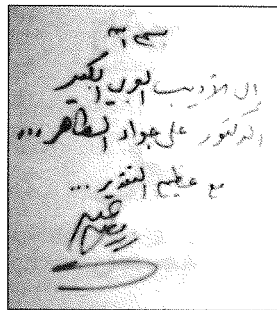 بسم الله
إلى الأديب العربي الكبير
الدكتور علي جواد الطاهر...
مع عظيم التقدير...